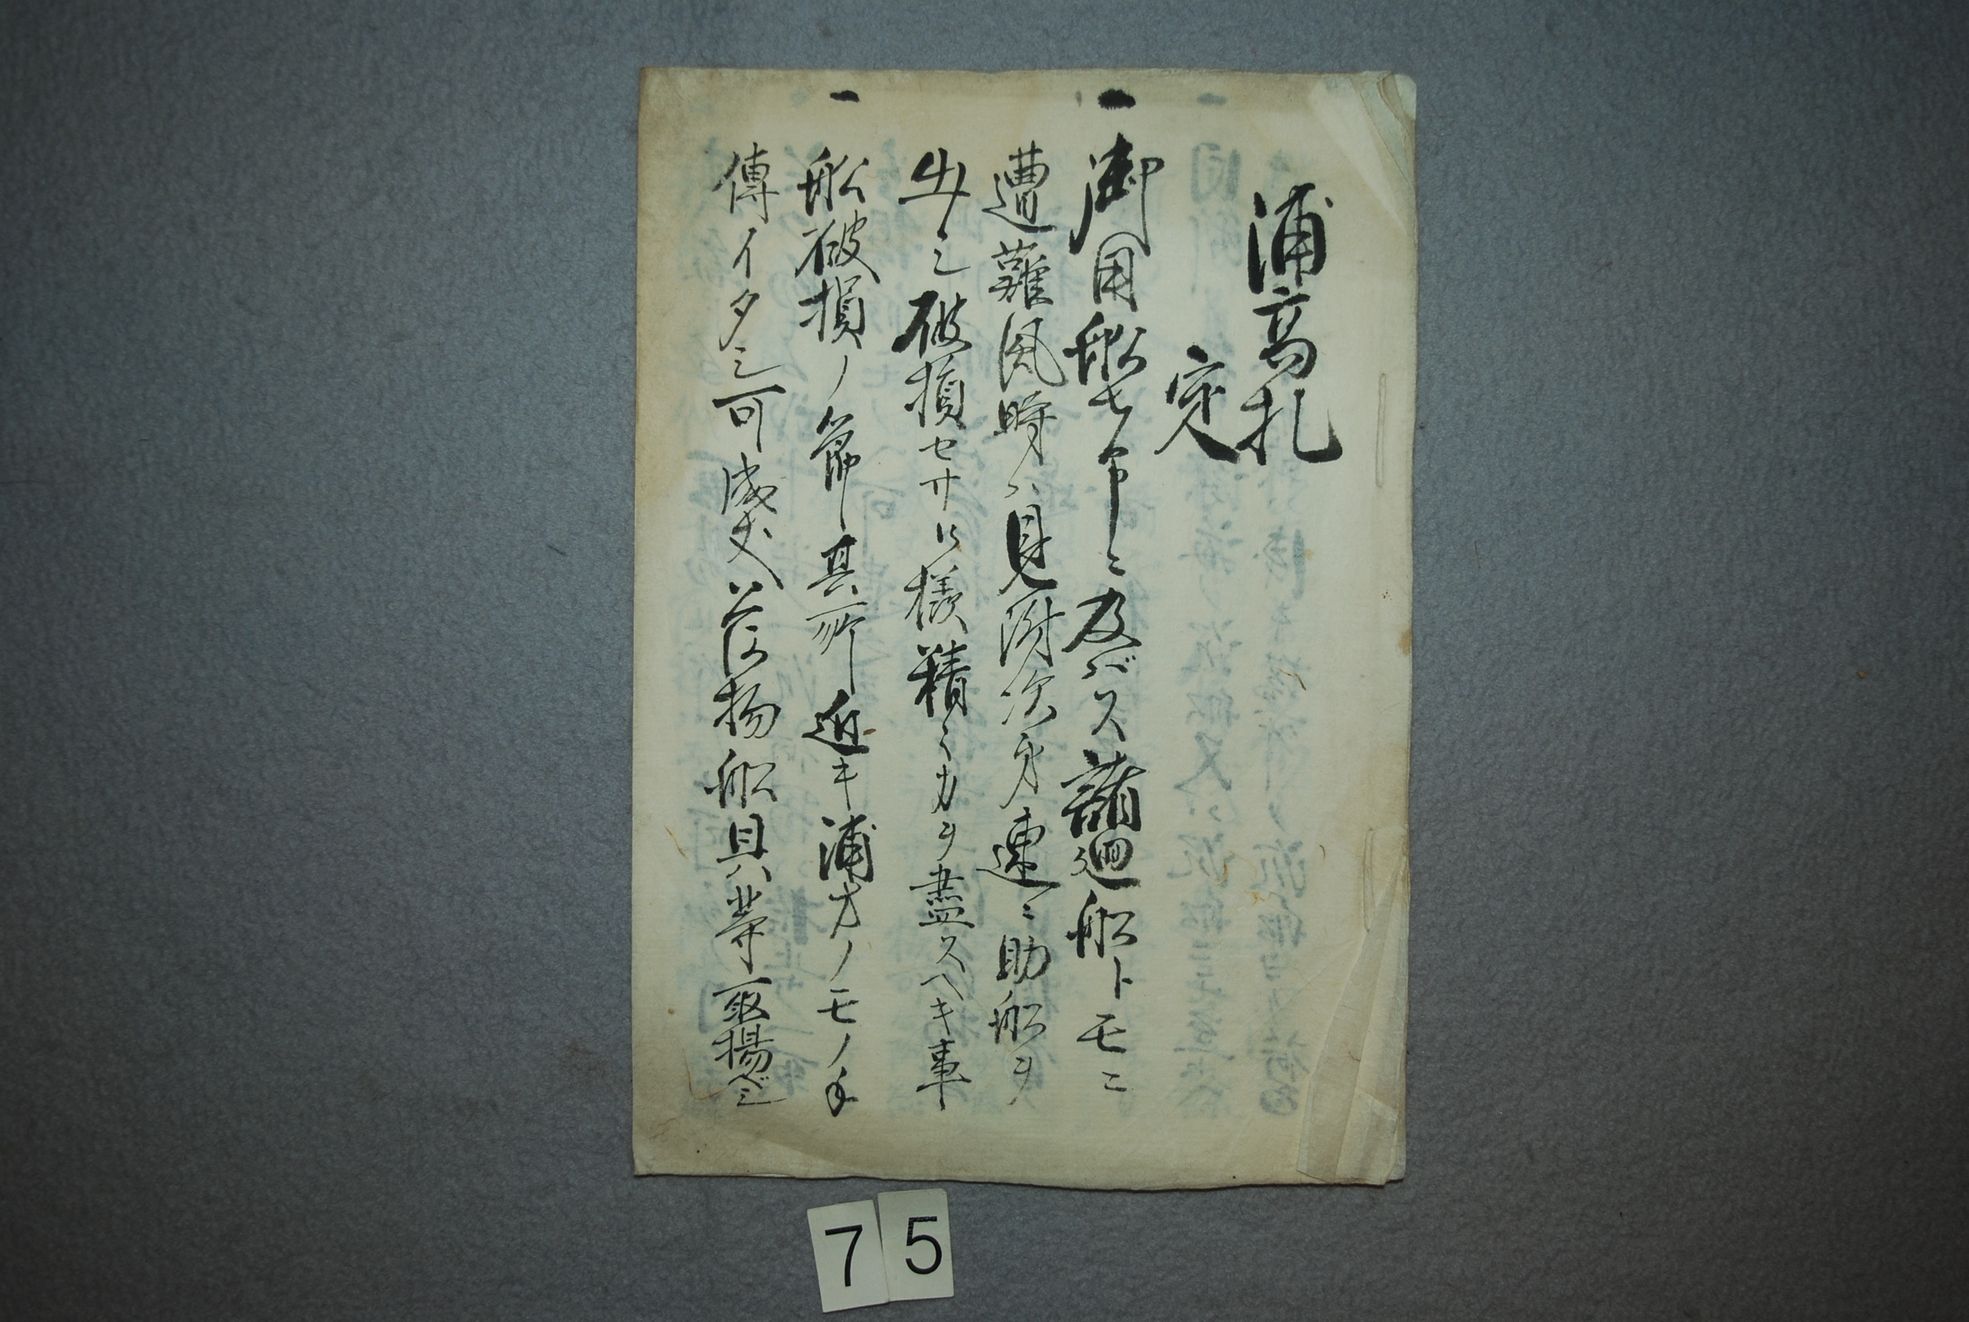 浦高札
定
一御用船ハ申ニ及バス諸廻船トモニ
遭難風時ハ見附次第速ニ助船ヲ
出シ破損セサル様精々力ヲ盡スヘキ事
一船破損ノ節其所近キ浦方ノモノ手
傳イタシ可成丈ハ荷物船具等取揚ベシ
75